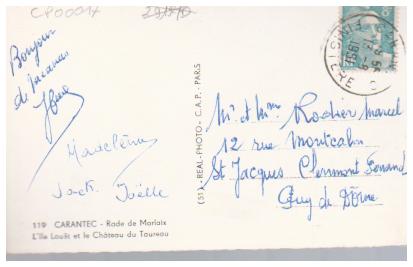 CP00017
Bonjour
de vacances
Madeleine
Jack. Joëlle
119 CARANTEC - Rade de Morlaix
L'Ile Louët et le Château du Taureau
(51) - REAL-PHOTO - C.A.P. - PARIS
Mr et Mme Rodier Marcel
12 rue Montcalm
St Jacques Clermont Ferrand
Puy de Dôme